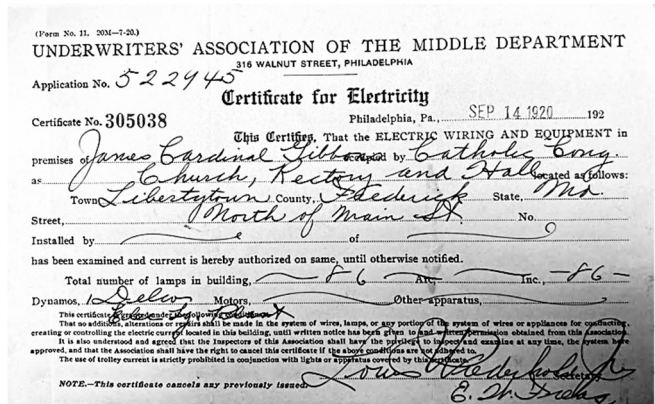 (Form No. 11. 20M—7-20.)
UNDERWRITERS' ASSOCIATION OF THE MIDDLE DEPARTMENT
316 WALNUT STREET, PHILADELPHIA
Application No. 522945
Certificate for Electricity
Certificate No. 305038 Philadelphia, Pa., SEP 14 1920 192
This Certifies, That the ELECTRIC WIRING AND EQUIPMENT in
premises of James Cardinal Gibbons occupied by Catholic Cong.
as Church, Rectory and Hall located as follows:
Town Libertytown County, Frederick State, Md.
Street, North of Main St. No.
Installed by of
has been examined and current is hereby authorized on same, until otherwise notified.
Total number of lamps in building, 86 Arc, Inc., 86
Dynamos, 1 Delco Motors, Other apparatus,
This certificate is issued under the following conditions:
That no additions, alterations or repairs shall be made in the system of wires, lamps, or any portion of the system of wires or appliances for conducting,
creating or controlling the electric current located in this building, until written notice has been given to and written permission obtained from this Association.
It is also understood and agreed that the Inspectors of this Association shall have the privilege to inspect and examine at any time, the system here
approved, and that the Association shall have the right to cancel this certificate if the above conditions are not adhered to.
The use of trolley current is strictly prohibited in conjunction with lights or apparatus covered by this certificate.
Secretary
NOTE.—This certificate cancels any previously issued.